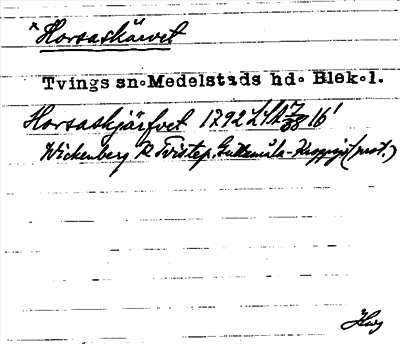 *Horsaskärvet
Tvings sn. Medelstads hd. Blek. l.
Horsaskjärfvet 1792 LSA 7/38 16'
Wickenberg R Tvistep. Guttamåla-Knoppje (prot.)